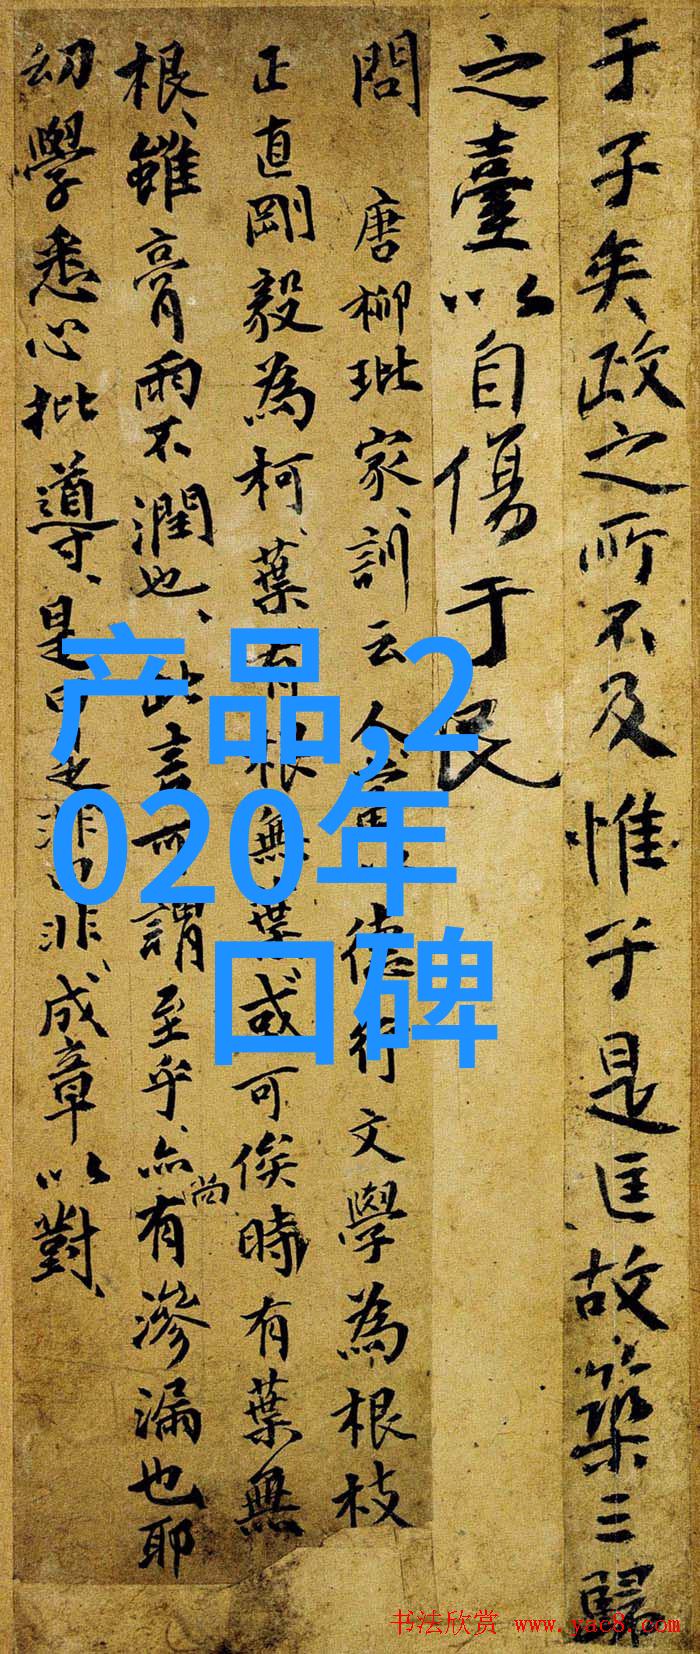 于子矣政之所不及惟于是匡故築三歸
之臺以自傷于民
問 唐柳玭家訓云人德行文學為根枝
正直剛毅為柯、葉、有根無葉或可俟時有葉無
根、雖膏雨不潤也、此言可謂至乎、亦尚有滲漏也耶
幼學悉心批導、是曰是非曰非、成章以對、
产品,2
020年
口碑
书法欣赏 www.yac8.com